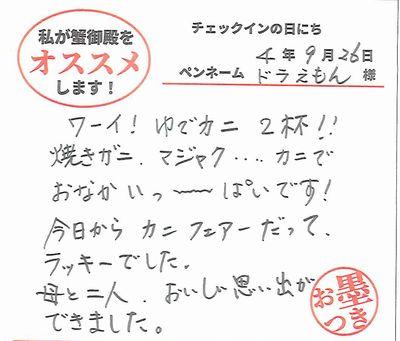 私が蟹御殿を
オススメ
します！
チェックインの日にち
4年9月26日
ペンネーム ドラえもん 様
ワーイ！ゆでカニ 2杯！！
焼きガニ、マジャク‥‥カニで
おなかいっ〜〜ぱいです！
今日から カニフェアーだって、
ラッキーでした。
母と二人、おいしい思い出が
できました。
お墨つき